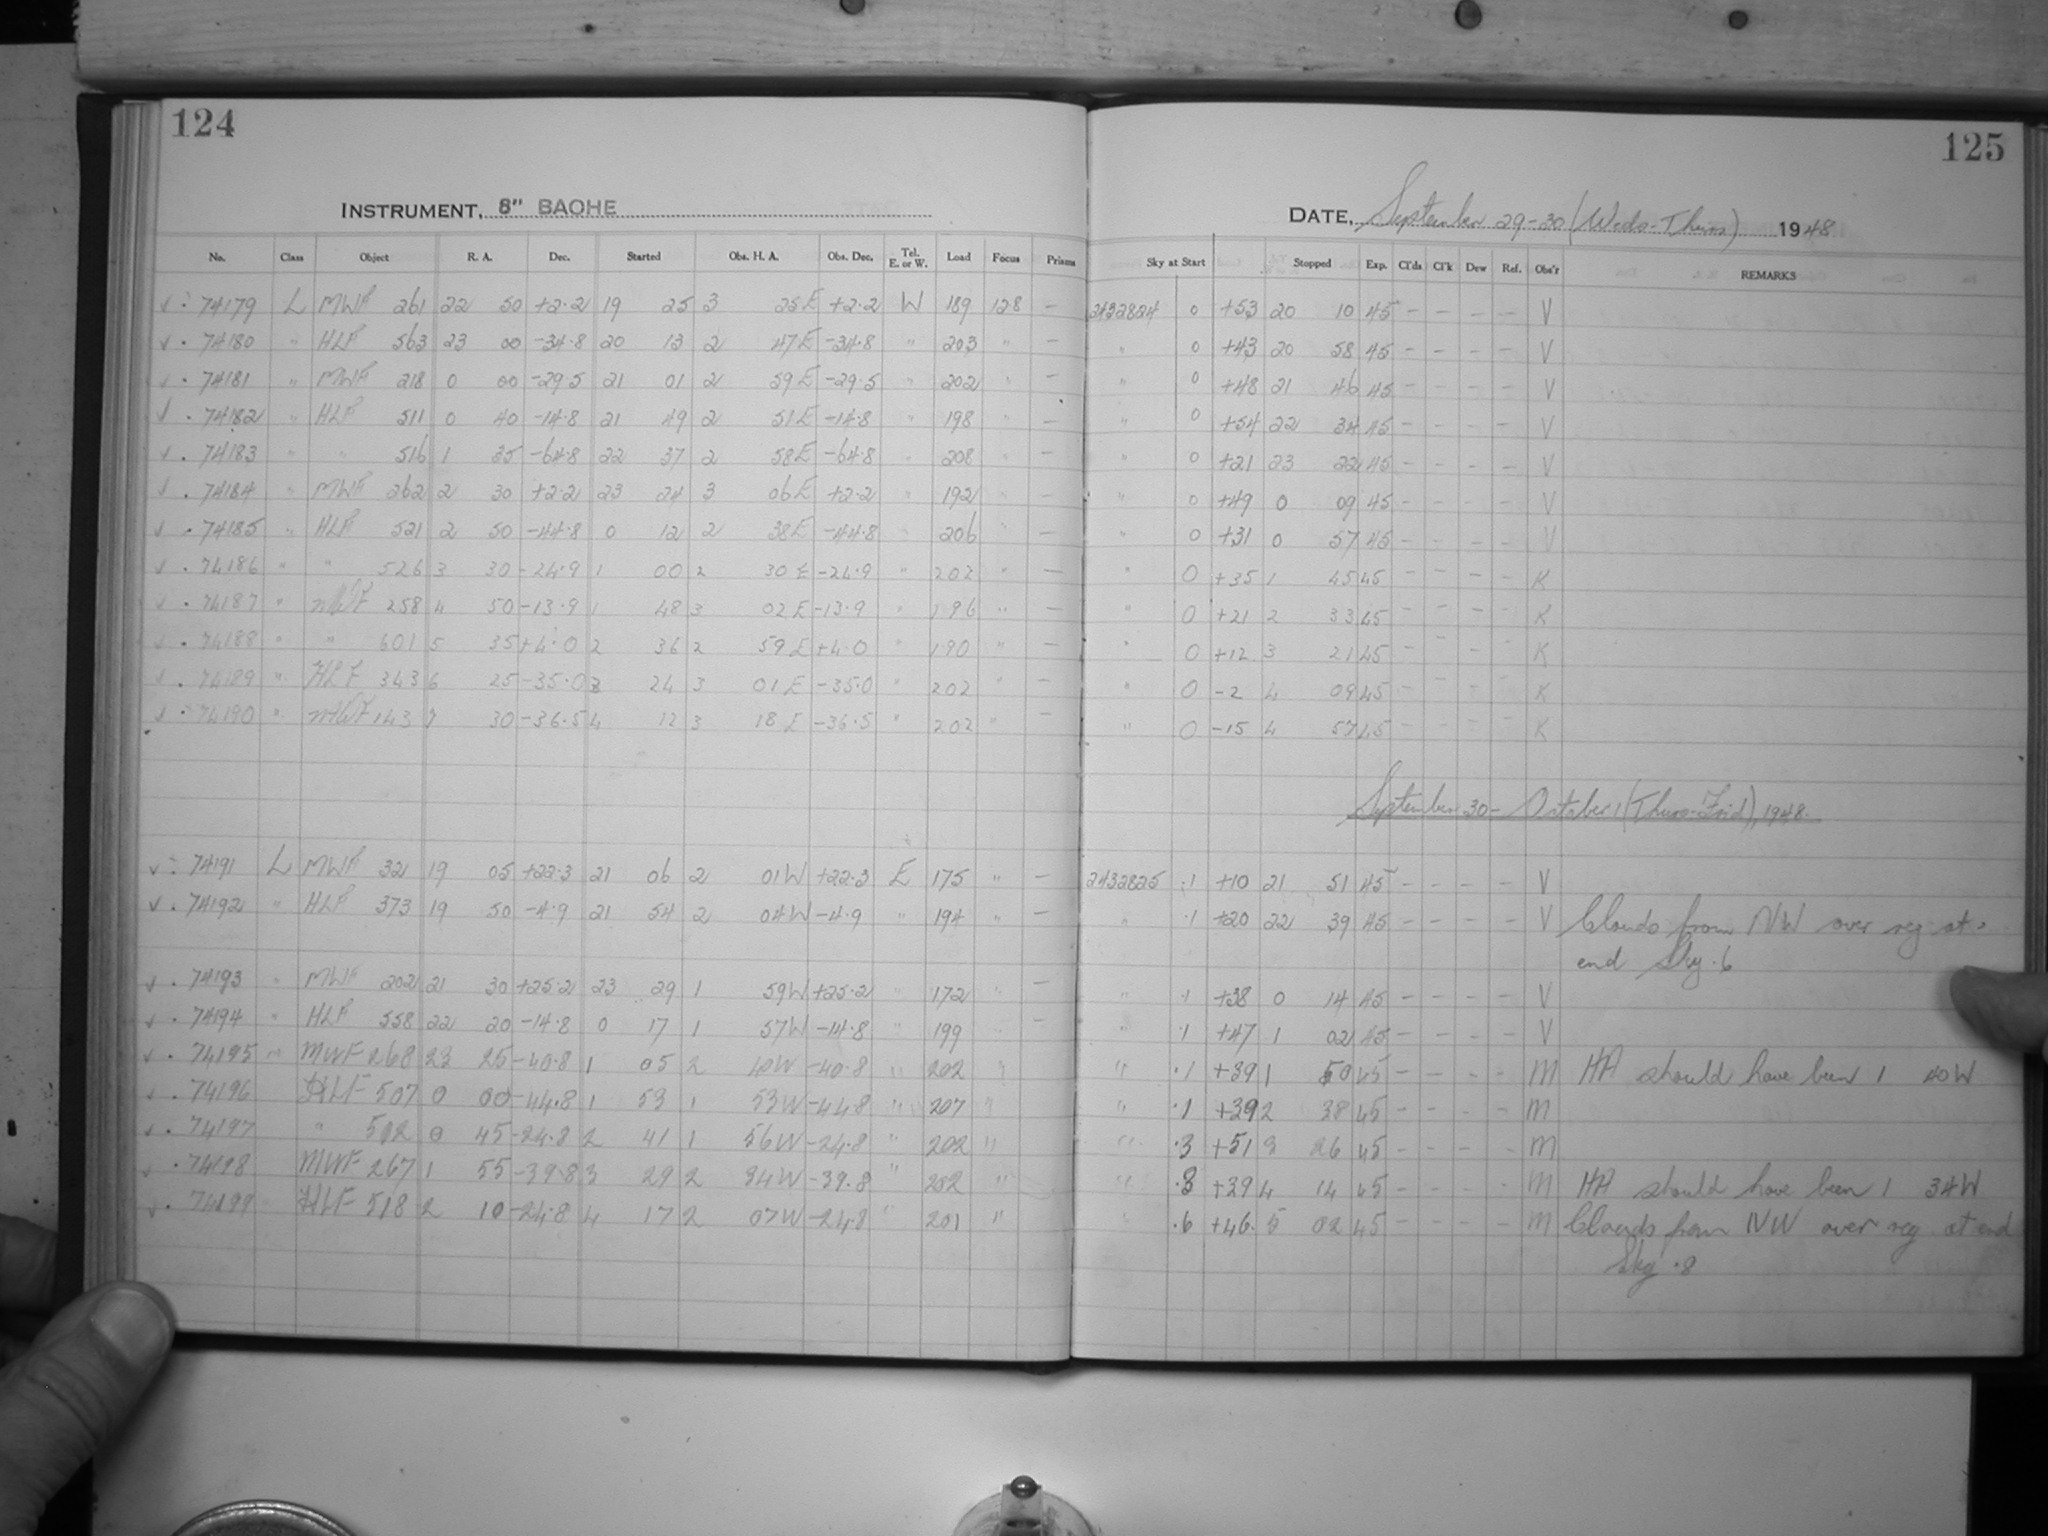 124
INSTRUMENT, 8" BAOHE
No. Class Object R. A. Dec. Started Obs. H. A. Obs. Dec. Tel. E. or W. Load Focus Prisms
✓ : 74179 L MWF 261 22 50 +2.2 19 25 3 25E +2.2 W 189 128 —
✓ . 74180 " HLF 563 23 00 -34.8 20 13 2 47E -34.8 " 203 " —
✓ . 74181 " MWF 218 0 00 -29.5 21 01 2 59E -29.5 " 202 " —
✓ . 74182 " HLF 511 0 40 -14.8 21 49 2 51E -14.8 " 198 " —
✓ . 74183 " " 516 1 35 -64.8 22 37 2 58E -64.8 " 208 " —
✓ . 74184 " MWF 262 2 30 +2.2 23 24 3 06E +2.2 " 192 " —
✓ . 74185 " HLF 521 2 50 -44.8 0 12 2 38E -44.8 " 206 " —
✓ . 74186 " " 526 3 30 -24.9 1 00 2 30E -24.9 " 202 " —
✓ . 74187 " MWF 258 4 50 -13.9 1 48 3 02E -13.9 " 196 " —
✓ . 74188 " " 601 5 35 +4.0 2 36 2 59E +4.0 " 190 " —
✓ . 74189 " HLF 343 6 25 -35.0 3 24 3 01E -35.0 " 202 " —
✓ . 74190 " MWF 143 7 30 -36.5 4 12 3 18E -36.5 " 202 " —
✓ : 74191 L MWF 32 19 05 +22.3 21 06 2 01W +22.3 E 175 " —
✓ . 74192 " HLF 373 19 50 -4.9 21 54 2 04W -4.9 " 194 " —
✓ . 74193 " MWF 202 21 30 +25.2 23 29 1 59W +25.2 " 172 " —
✓ . 74194 " HLF 558 22 20 -14.8 0 17 1 57W -14.8 " 199 " —
✓ . 74195 " MWF 268 23 25 -40.8 1 05 2 40W -40.8 " 202 "
✓ . 74196 HLF 507 0 00 -44.8 1 53 1 53W -44.8 " 207 "
✓ . 74197 " 502 0 45 -24.8 2 41 1 56W -24.8 " 202 "
✓ . 74198 MWF 267 1 55 -39.8 3 29 2 34W -39.8 " 202 "
✓ . 74199 HLF 518 2 10 -24.8 4 17 2 07W -24.8 " 201 "
125
DATE, September 29-30 (Weds-Thurs) 1948
Sky at Start Stopped Exp. Cl'ds Cl'k Dew Ref. Obs'r REMARKS
2432824 0 +53 20 10 45 — — — — V
" 0 +43 20 58 45 — — — — V
" 0 +48 21 46 45 — — — — V
" 0 +54 22 34 45 — — — — V
" 0 +21 23 22 45 — — — — V
" 0 +49 0 09 45 — — — — V
" 0 +31 0 57 45 — — — — V
" 0 +35 1 45 45 — — — — K
" 0 +21 2 33 45 — — — — K
" 0 +12 3 21 45 — — — — K
" 0 -2 4 09 45 — — — — K
" 0 -15 4 57 45 — — — — K
September 30 - October 1 (Thurs-Frid), 1948.
2432825 .1 +10 21 51 45 — — — — V
" .1 +20 22 39 45 — — — — V Clouds from NW over reg at
end Sky .6
" .1 +38 0 14 45 — — — — V
" .1 +47 1 02 45 — — — — V
" .1 +39 1 50 45 — — — — M HA should have been 1 40W
" .1 +39 2 38 45 — — — — M
" .3 +51 3 26 45 — — — — M
" .8 +39 4 14 45 — — — — M HA should have been 1 34W
" .6 +46 5 02 45 — — — — M Clouds from NW over reg at end
Sky .8